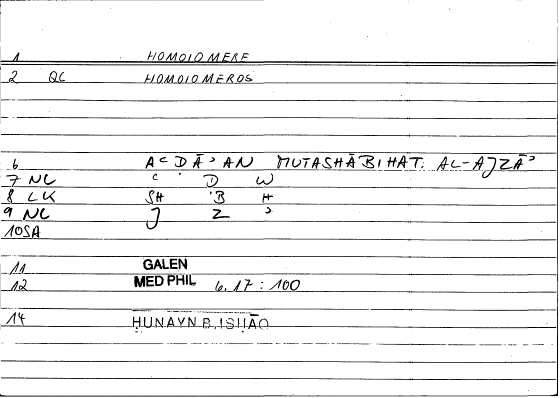 1 HOMOIOMERE
2 QC HOMOIOMEROS
6 AᶜḌĀʾAN MUTASHĀBIHAT. AL-AJZĀʾ
7 NC ᶜ Ḍ W
8 LK SH B H
9 NC J Z ʾ
10 SA
11 GALEN
12 MED PHIL 6.17 : 100
14 ḤUNAYN B. ISḤĀQ